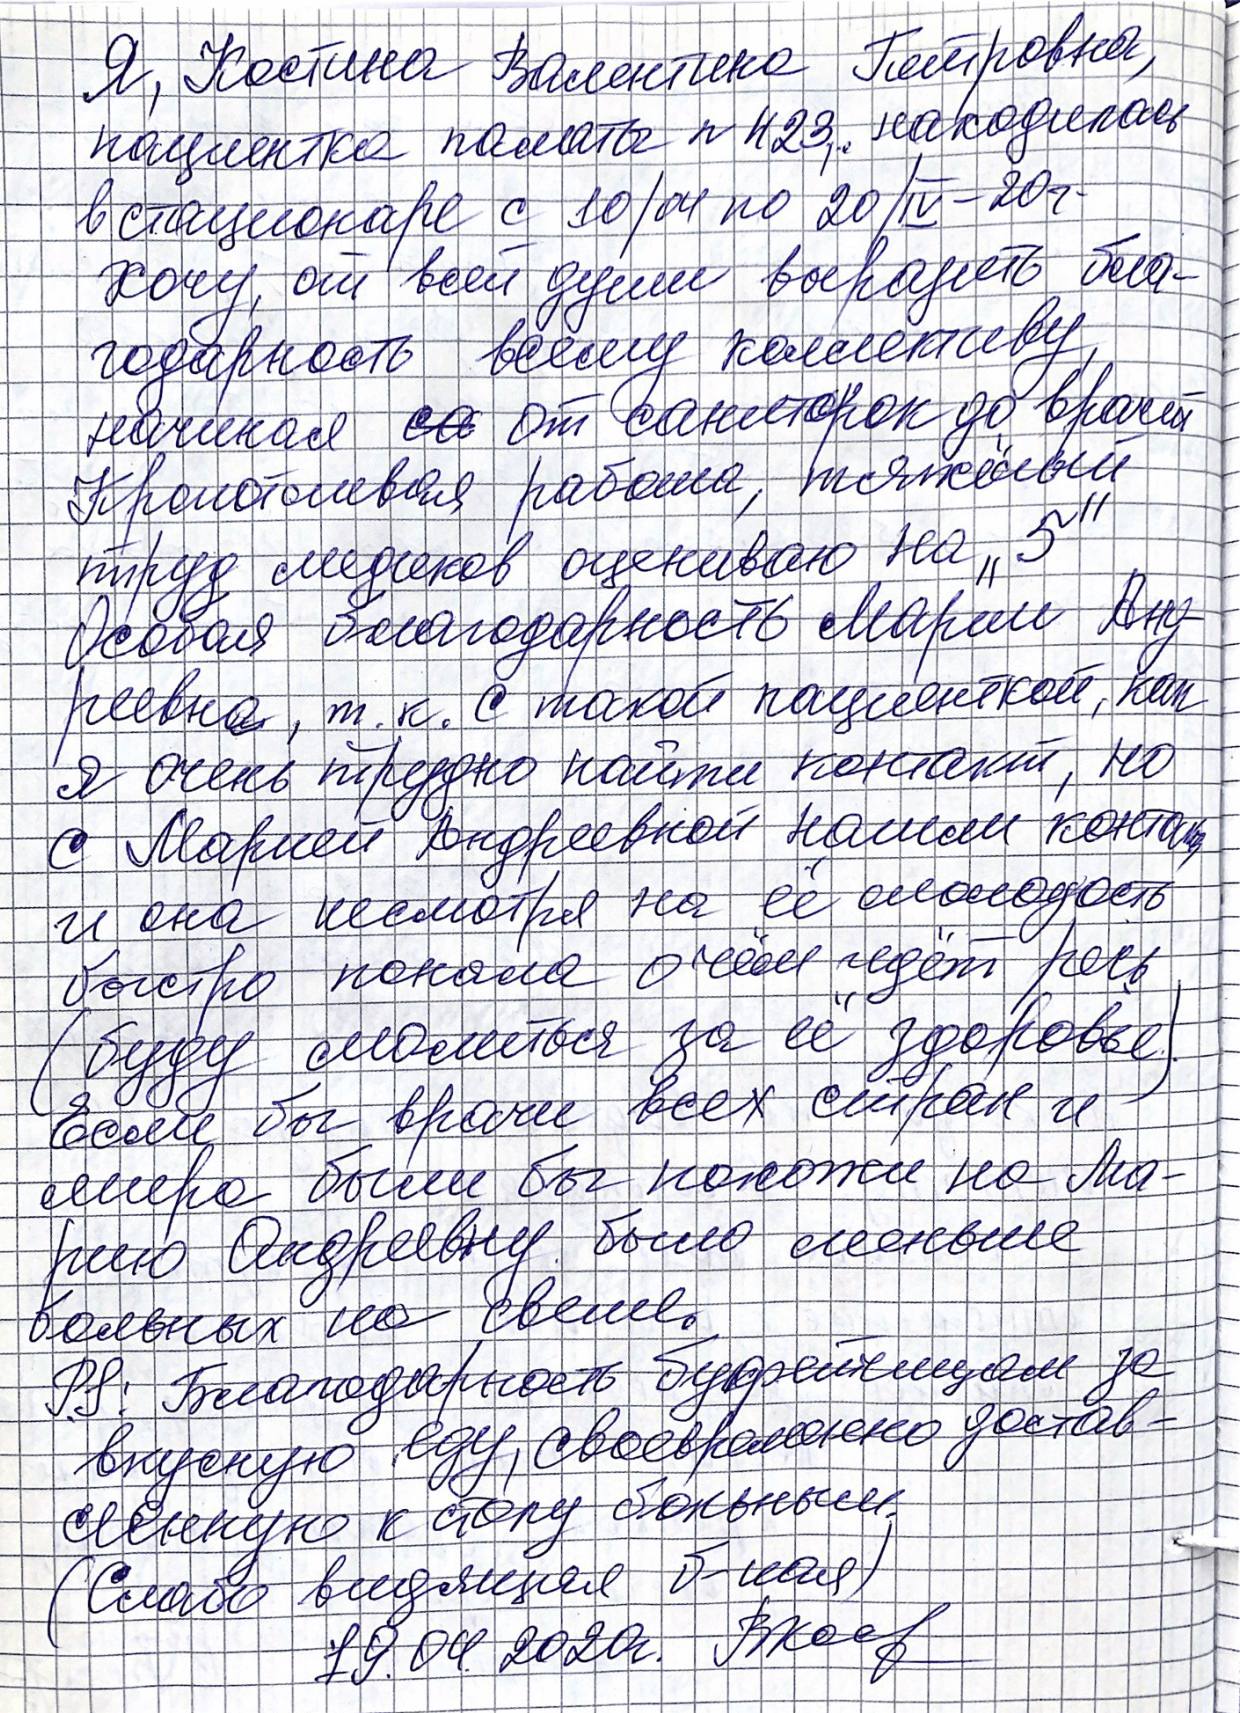 Я, Костина Валентина Петровна,
пациентка палаты № 423, находилась
в стационаре с 10/04 по 20/IV-20г.
Хочу от всей души выразить бла-
годарность всему коллективу,
начиная от санитарок до врачей
Кропотливая работа, тяжёлый
труд медиков оцениваю на „5"
Особая благодарность Марии Анд-
реевна, т.к. с такой пациенткой, как
я очень трудно найти контакт, но
с Марией Андреевной нашли контакт,
и она несмотря на её молодость
быстро поняла о чём идёт речь
(буду молиться за её здоровье).
Если бы врачи всех стран и
мира были бы похожи на Ма-
рию Андреевну было меньше
больных на свете.
P.S: Благодарность буфетчицам за
вкусную еду, своевременно достав-
ленную к столу больным.
(Слабо видящая б-ная)
19.04.2020г. ВКост